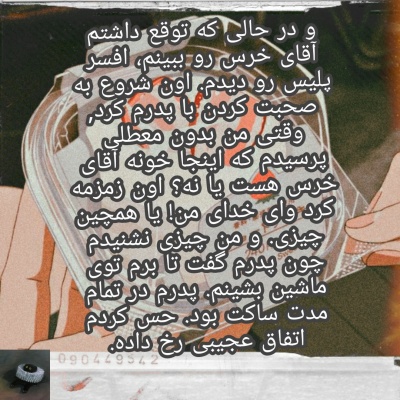 و در حالی که توقع داشتم
آقای خرس رو ببینم، افسر
پلیس رو دیدم. اون شروع به
صحبت کردن با پدرم کرد,
وقتی من بدون معطلی
پرسیدم که اینجا خونه آقای
خرس هست یا نه؟ اون زمزمه
کرد وای خدای من! یا همچین
چیزی. و من چیزی نشنیدم
چون پدرم گفت تا برم توی
ماشین بشینم. پدرم در تمام
مدت ساکت بود. حس کردم
اتفاق عجیبی رخ داده.
090449542